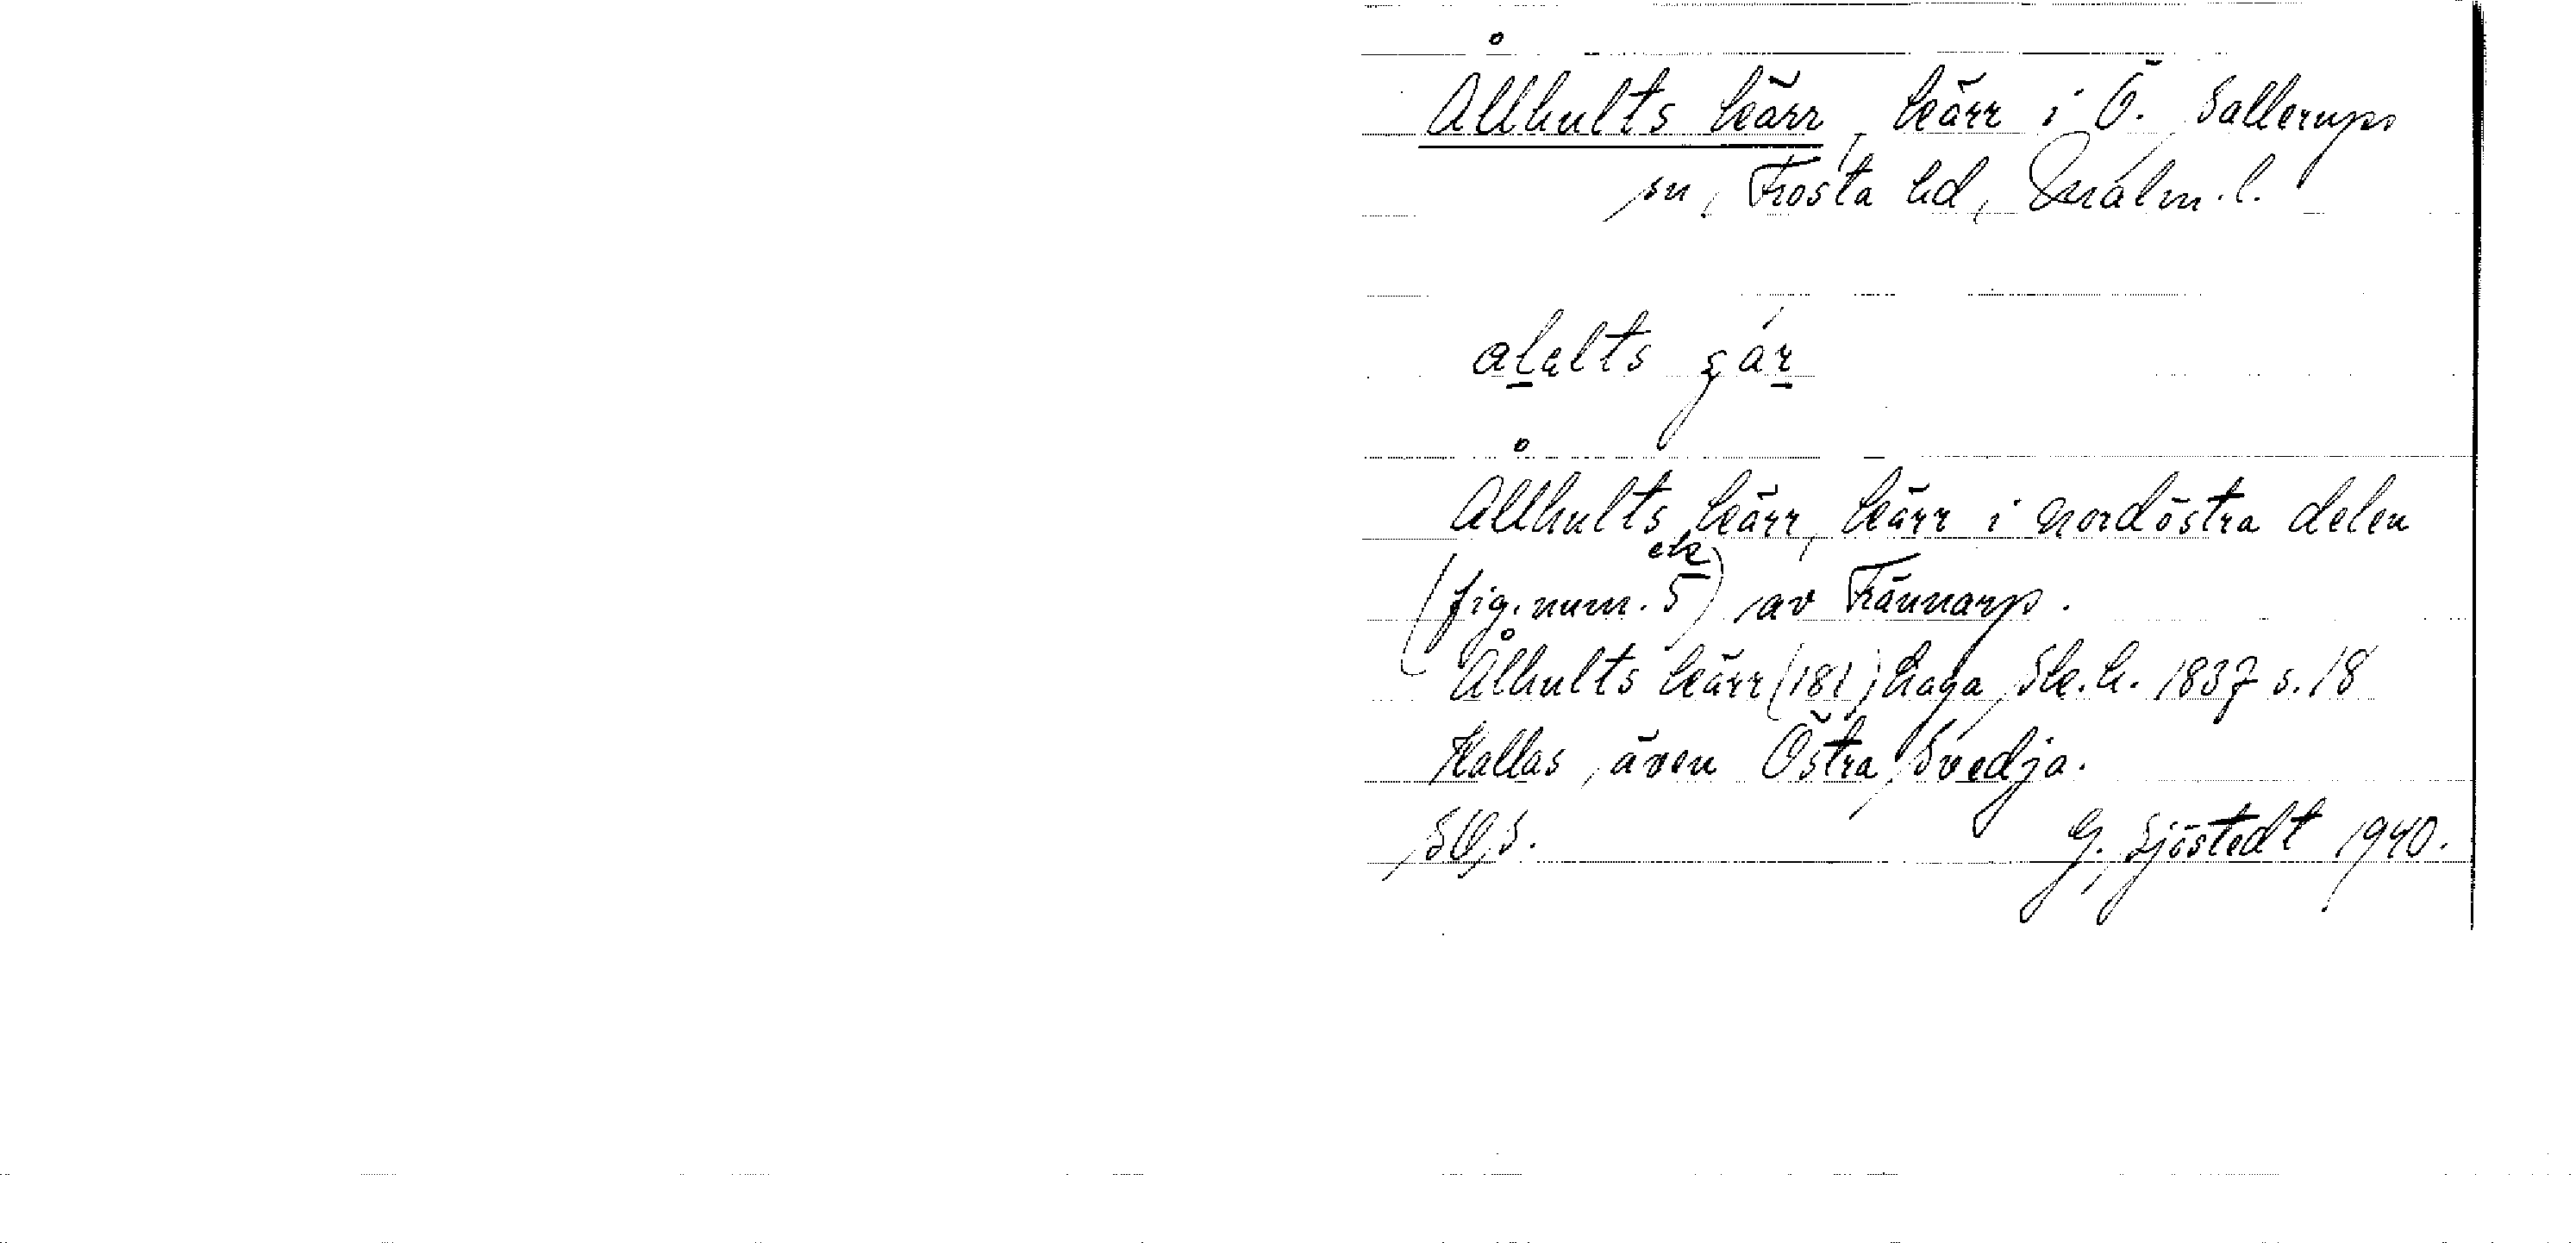 Ållhults kärr, kärr i Ö. Sallerups
sn, Frosta hd, Malm. l.
alalts gár
Ållhults kärr, kärr i nordöstra delen
(fig. num. 5 ek) av Trännarp.
Ålhults kärr (181) haga, Sk. h. 1837 s. 18
Kallas även Östra Svedja.
G. Sjöstedt 1940.